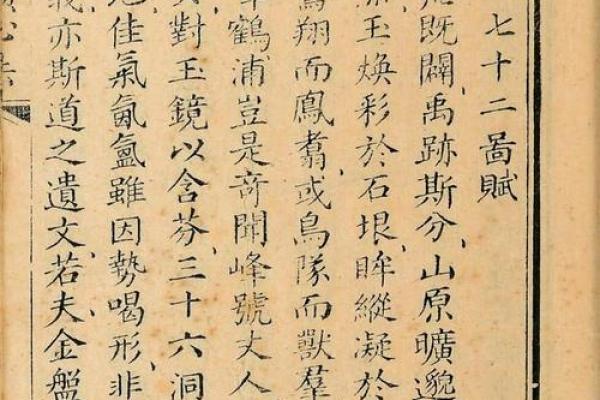 七十二啚賦
既闢、禹跡斯分、山原曠邈
玉煥彩於石垠、眸縱凝於
翔而鳳翥、或鳥隊而獸羣
鶴浦、豈是竒聞、峰號丈人
對玉鏡以含芬、三十六洞
佳氣氤氳、雖因勢喝形、非
亦斯道之遺文、若夫金盤